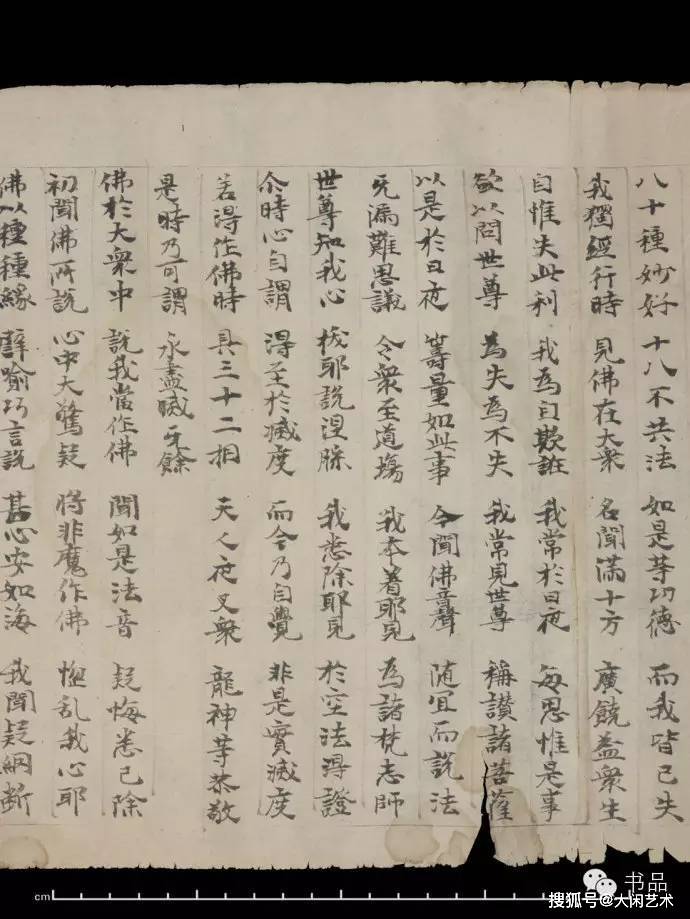 八十種妙好 十八不共法 如是等功德 而我皆已失
我獨經行時 見佛在大衆 名聞滿十方 廣饒益衆生
自惟失此利 我為自欺誑 我常於日夜 每思惟是事
欲以問世尊 為失為不失 我常見世尊 稱讃諸菩薩
以是於日夜 籌量如此事 今聞佛音聲 随宜而說法
无漏難思議 令衆至道場 我本着耶見 為諸梵志師
世尊知我心 拔耶說涅槃 我悉除耶見 於空法得證
尒時心自謂 得至於滅度 而今乃自覺 非是實滅度
若得作佛時 具三十二相 天人夜叉衆 龍神等恭敬
是時乃可謂 永盡滅无餘
佛於大衆中 說我當作佛 聞如是法音 疑悔悉已除
初聞佛所說 心中大驚疑 將非魔作佛 惱乱我心耶
佛以種種緣 譬喻巧言說 其心安如海 我聞疑網断
cm
书品
搜狐号@大闲艺术